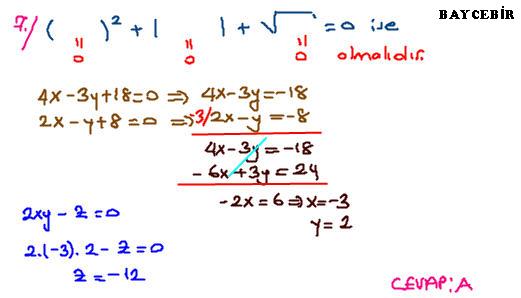 BAYCEBİR
7./ ( )² + | | + √ = 0 ise
= 0 = 0 = 0 olmalıdır.
4x-3y+18=0 ⇒ 4x-3y=-18
2x-y+8=0 ⇒ -3/ 2x-y=-8
4x-3y=-18
-6x+3y=24
-2x=6 ⇒ x=-3
y=2
2xy-z=0
2.(-3).2-z=0
z=-12
CEVAP:A